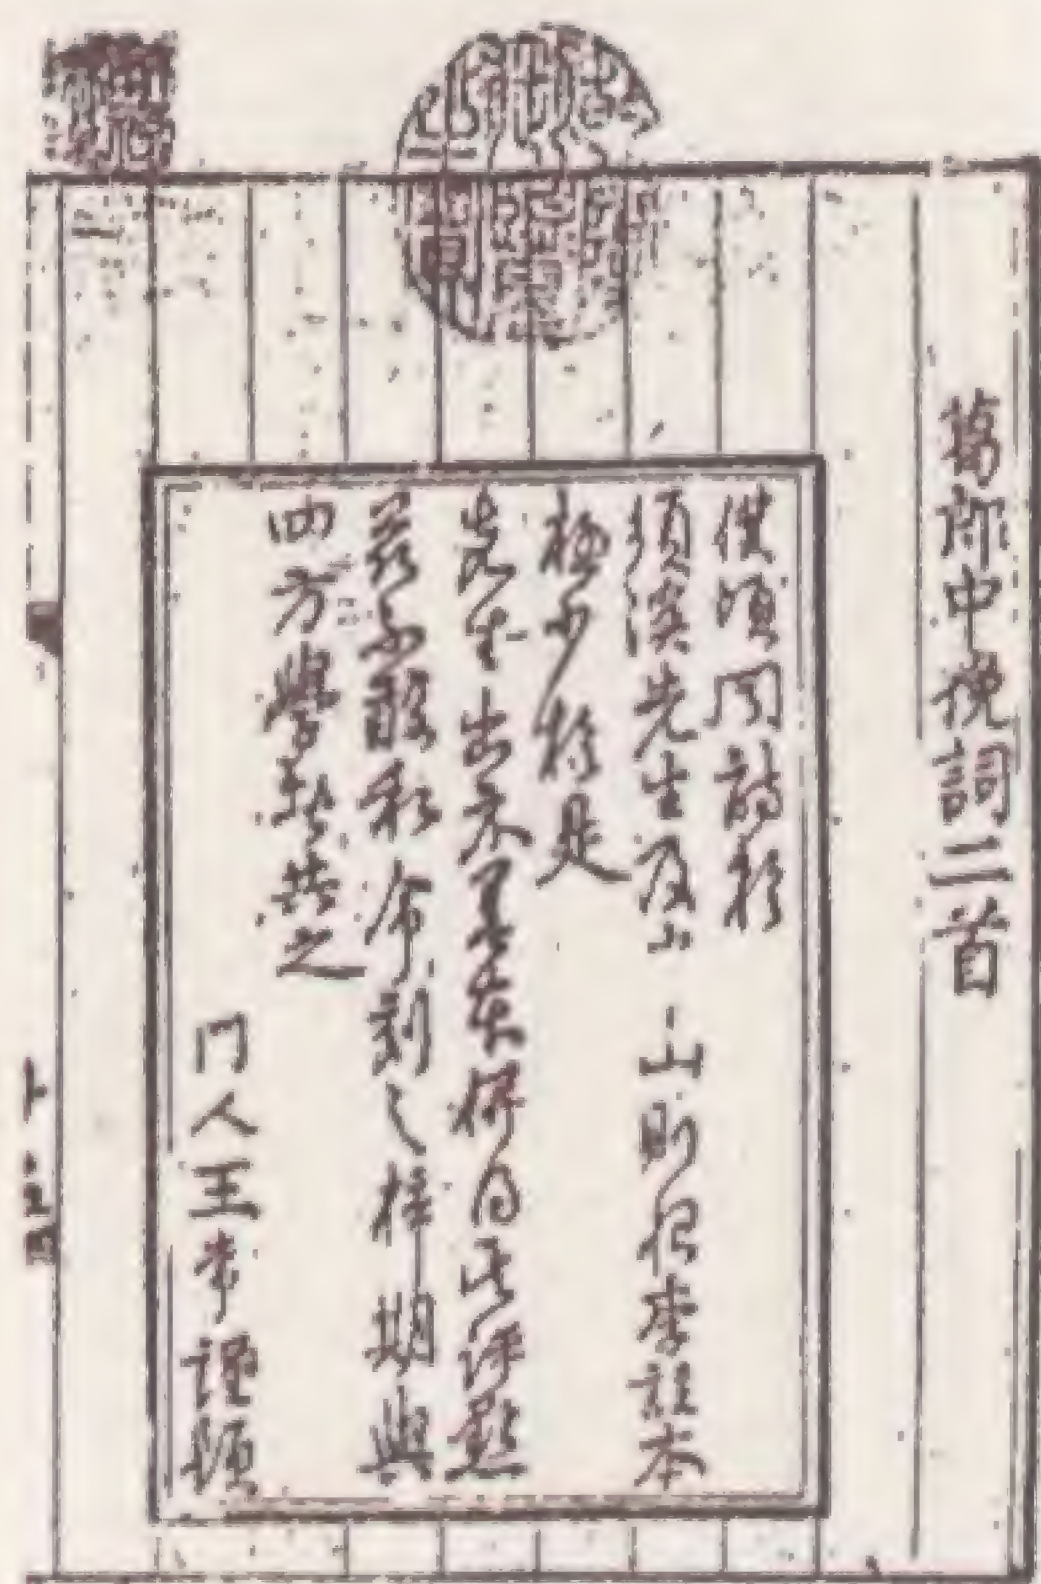 葛郎中挽詞二首
僕頃聞詩於
須溪先生及半山則恨李註本
極少於是
先生出示善本併得其評點
茲不敢私命刻之梓期與
四方學者共之
門人王常謹題